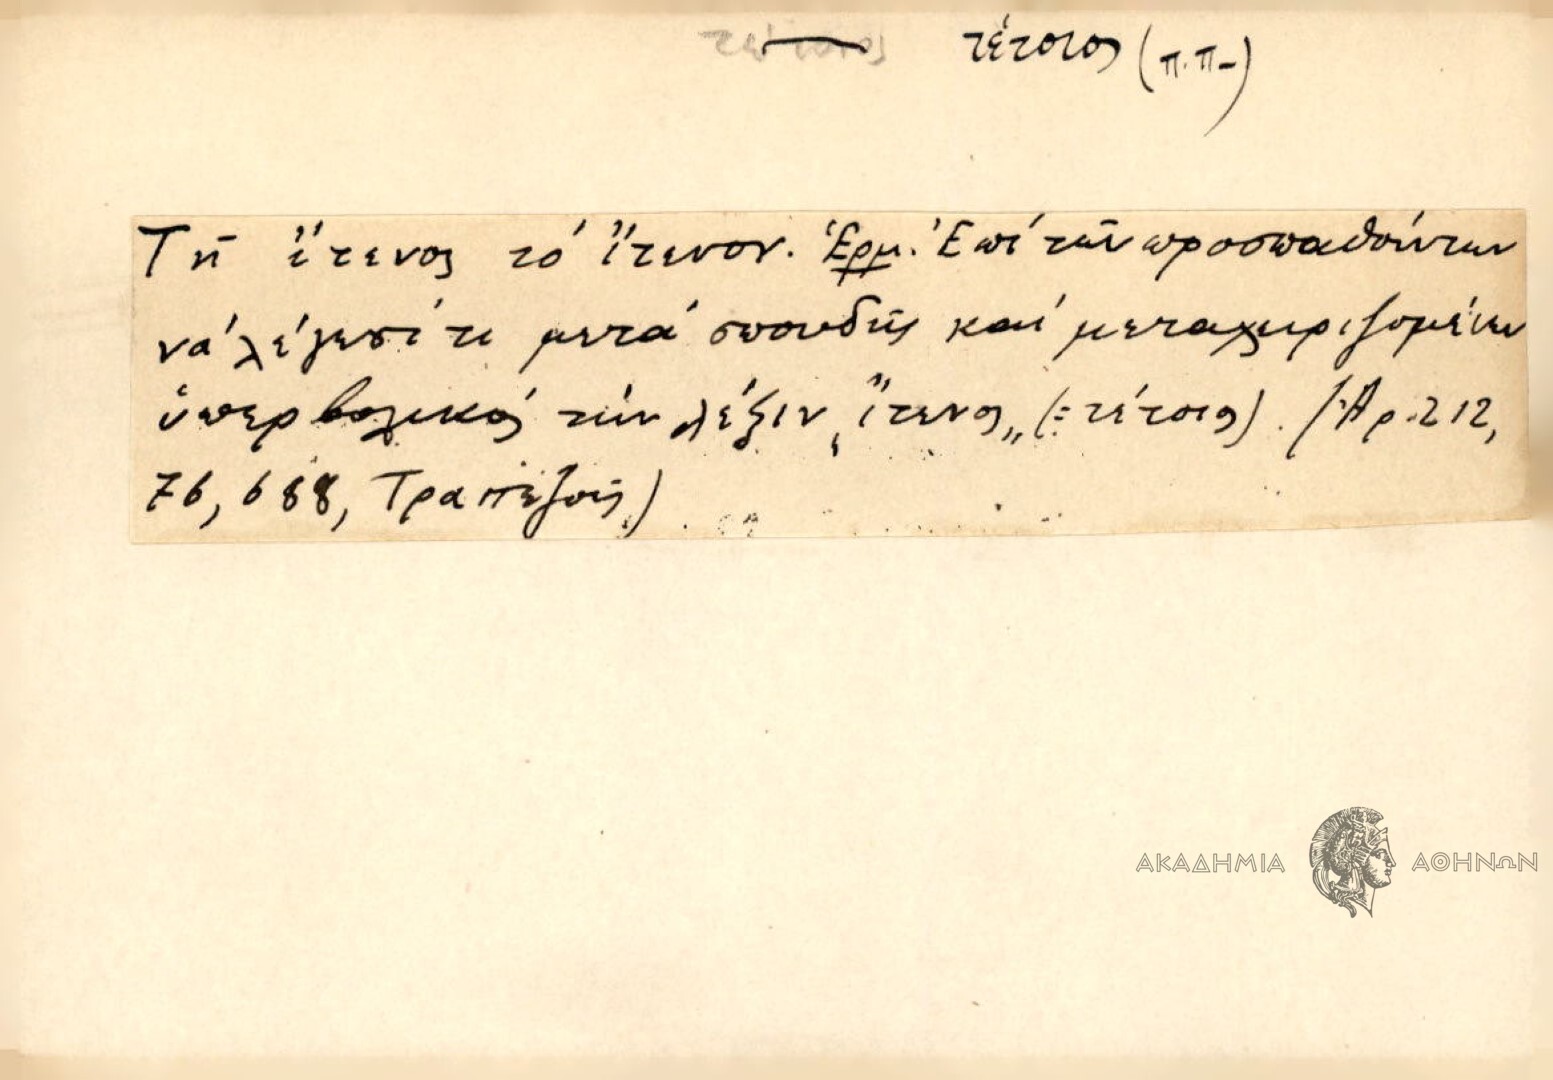 τέτοιος (π.π-)
Τῆ ἵτενος τὸ ἵτενον. Ἑρμ. Ἐπὶ τῶν προσπαθούντων
νὰ λέγωσί τι μετὰ σπουδῆς καὶ μεταχειριζομένων
ὑπερβολικῶς τὴν λέξιν „ἵτενος„ (= τέτοιος). (Ἀρ. 212,
76, 688, Τραπεζοῦς)
ΑΚΑΔΗΜΙΑ ΑΘΗΝΩΝ